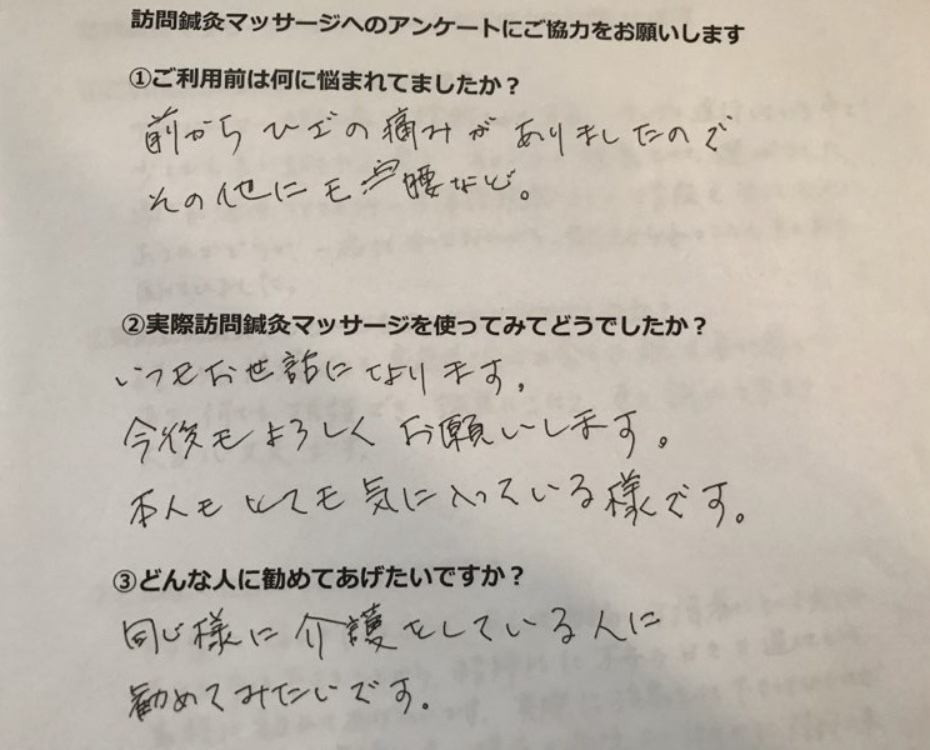 訪問鍼灸マッサージへのアンケートにご協力をお願いします
①ご利用前は何に悩まれてましたか？
前からひざの痛みがありましたので
その他にも 腰など。
②実際訪問鍼灸マッサージを使ってみてどうでしたか？
いつもお世話になります。
今後もよろしくお願いします。
本人もとても気に入っている様です。
③どんな人に勧めてあげたいですか？
同じ様に介護をしている人に
勧めてみたいです。